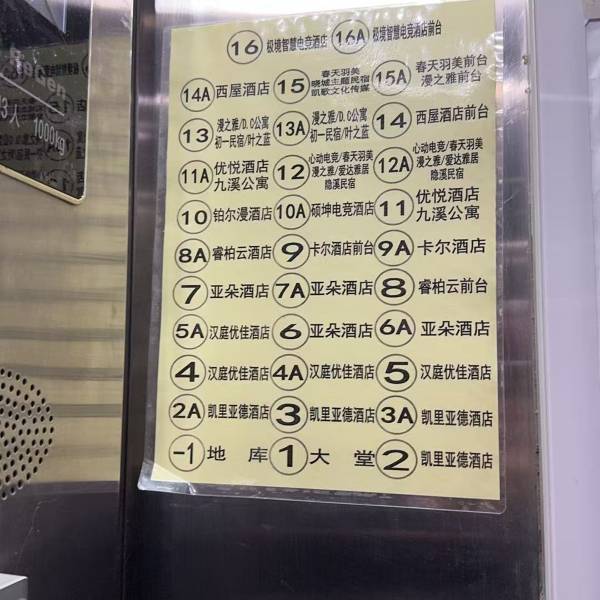 16 极境智慧电竞酒店 16A 极境智慧电竞酒店前台
14A 西屋酒店 15 春天羽美 晓城主题民宿 凯歌文化传媒 15A 春天羽美前台 漫之雅前台
13 漫之雅/D.C公寓 初一民宿/叶之蓝 13A 漫之雅/D.C公寓 初一民宿/叶之蓝 14 西屋酒店前台
11A 优悦酒店 九溪公寓 12 心动电竞/春天羽美 漫之雅/爱达雅居 隐溪民宿 12A 心动电竞/春天羽美 漫之雅/爱达雅居 隐溪民宿
10 铂尔漫酒店 10A 硕坤电竞酒店 11 优悦酒店 九溪公寓
8A 睿柏云酒店 9 卡尔酒店前台 9A 卡尔酒店
7 亚朵酒店 7A 亚朵酒店 8 睿柏云前台
5A 汉庭优佳酒店 6 亚朵酒店 6A 亚朵酒店
4 汉庭优佳酒店 4A 汉庭优佳酒店 5 汉庭优佳酒店
2A 凯里亚德酒店 3 凯里亚德酒店 3A 凯里亚德酒店
-1 地 库 1 大 堂 2 凯里亚德酒店